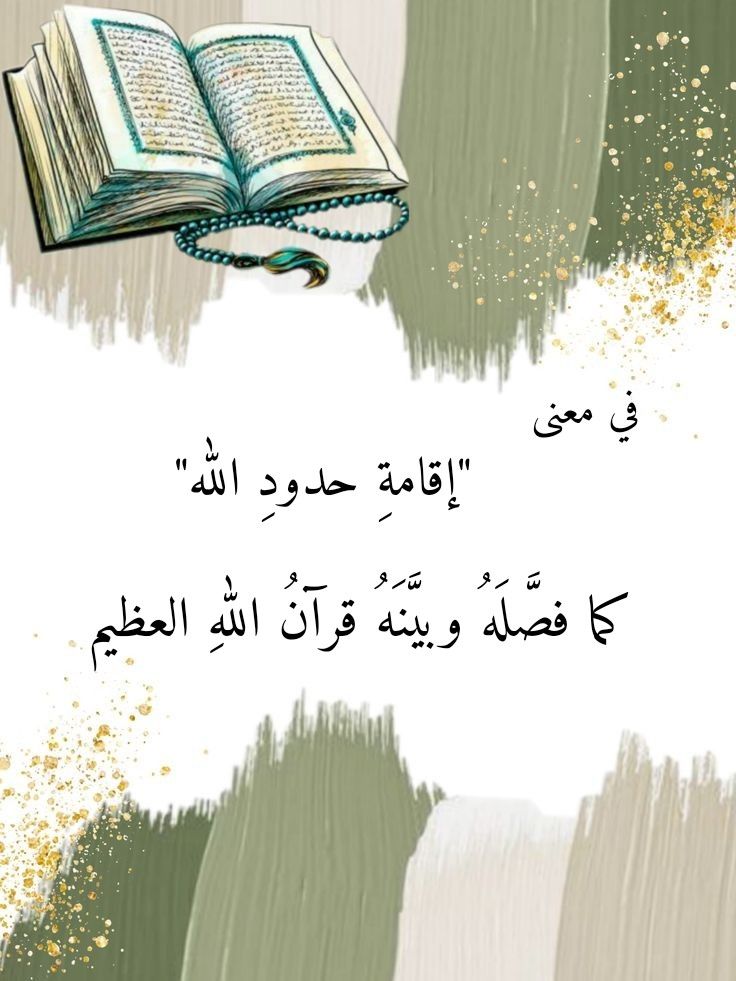 في معنى
"إقامةِ حدودِ الله"
كما فصَّلَهُ وبيَّنَهُ قرآنُ اللهِ العظيم